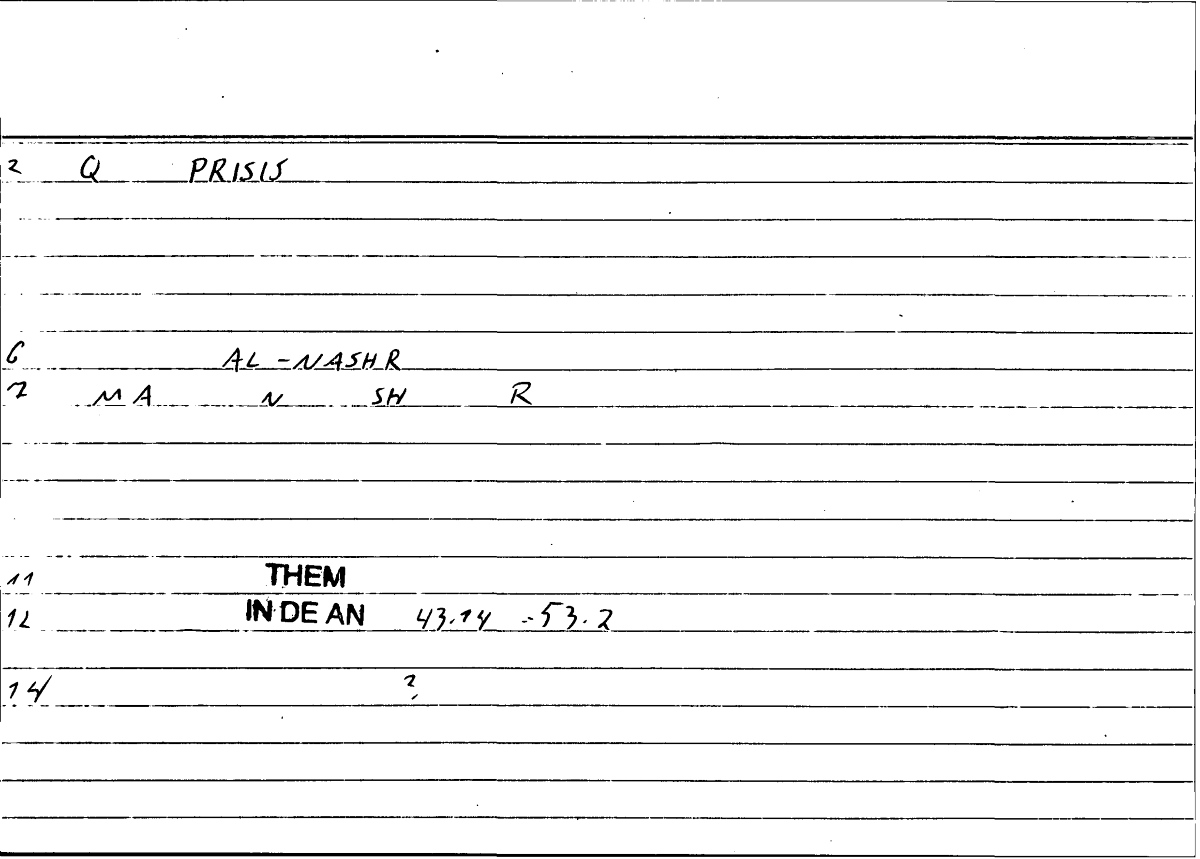 2 Q PRISIS
6 AL-NASHR
7 MA N SH R
11 THEM
12 IN DE AN 43.14 -53.2
14 ?